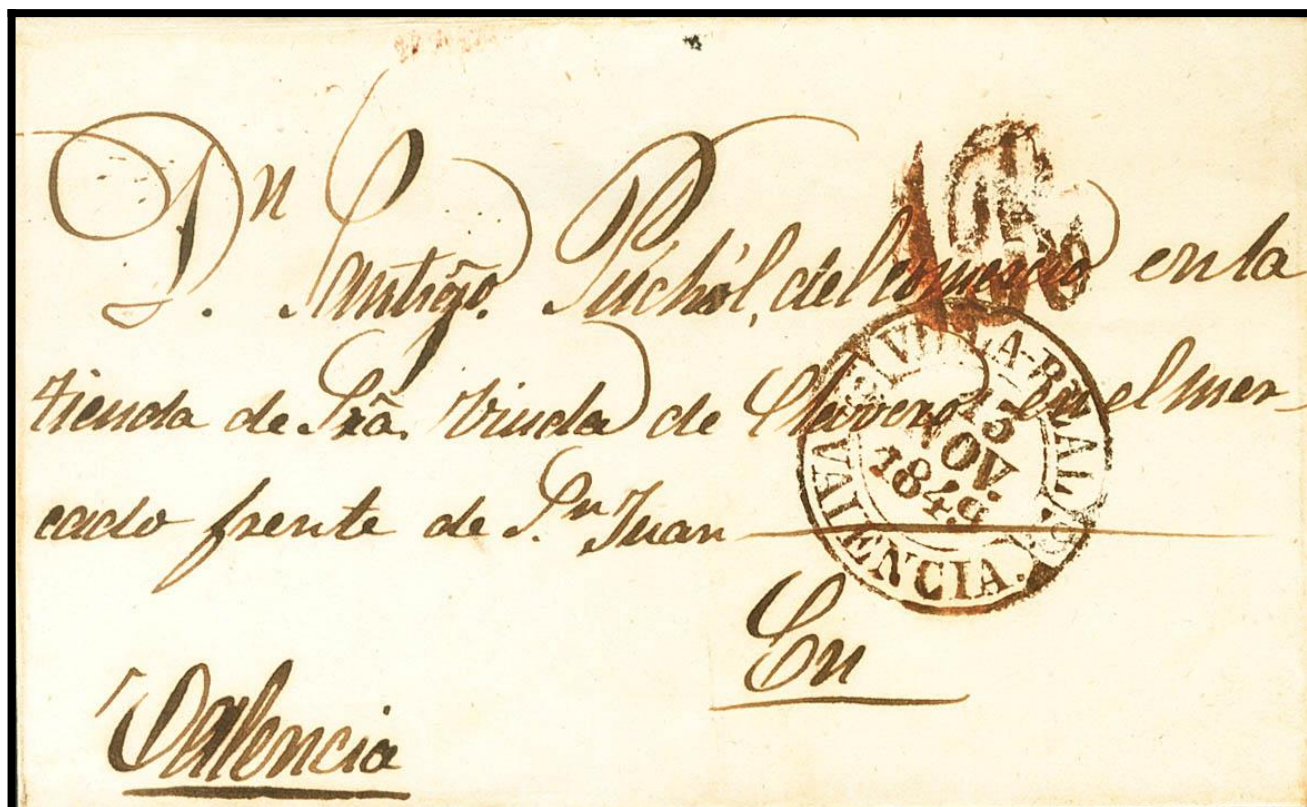 Dn Santigo. Puchol, del comercio en la
tienda de Sra. Viuda de Clavero en el mer-
cado frente de Sn Juan
En
Valencia
VILLA-REAL
NOV.
1849
VALENCIA.